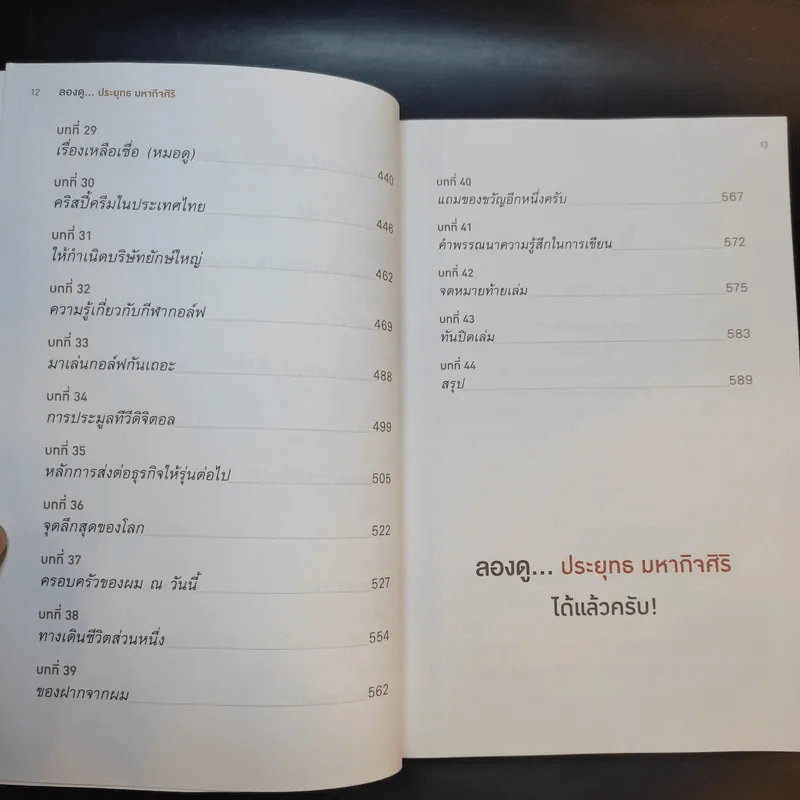 12 ลองดู... ประยุทธ มหากิจศิริ
บทที่ 29
เรื่องเหลือเชื่อ (หมอดู) 440
บทที่ 30
คริสปี้ครีมในประเทศไทย 446
บทที่ 31
ให้กำเนิดบริษัทยักษ์ใหญ่ 462
บทที่ 32
ความรู้เกี่ยวกับกีฬากอล์ฟ 469
บทที่ 33
มาเล่นกอล์ฟกันเถอะ 488
บทที่ 34
การประมูลทีวีดิจิตอล 499
บทที่ 35
หลักการส่งต่อธุรกิจให้รุ่นต่อไป 505
บทที่ 36
จุดลึกสุดของโลก 522
บทที่ 37
ครอบครัวของผม ณ วันนี้ 527
บทที่ 38
ทางเดินชีวิตส่วนหนึ่ง 554
บทที่ 39
ของฝากจากผม 562
13
บทที่ 40
แถมของขวัญอีกหนึ่งครับ 567
บทที่ 41
คำพรรณนาความรู้สึกในการเขียน 572
บทที่ 42
จดหมายท้ายเล่ม 575
บทที่ 43
ทันปิดเล่ม 583
บทที่ 44
สรุป 589
ลองดู... ประยุทธ มหากิจศิริ
ได้แล้วครับ!